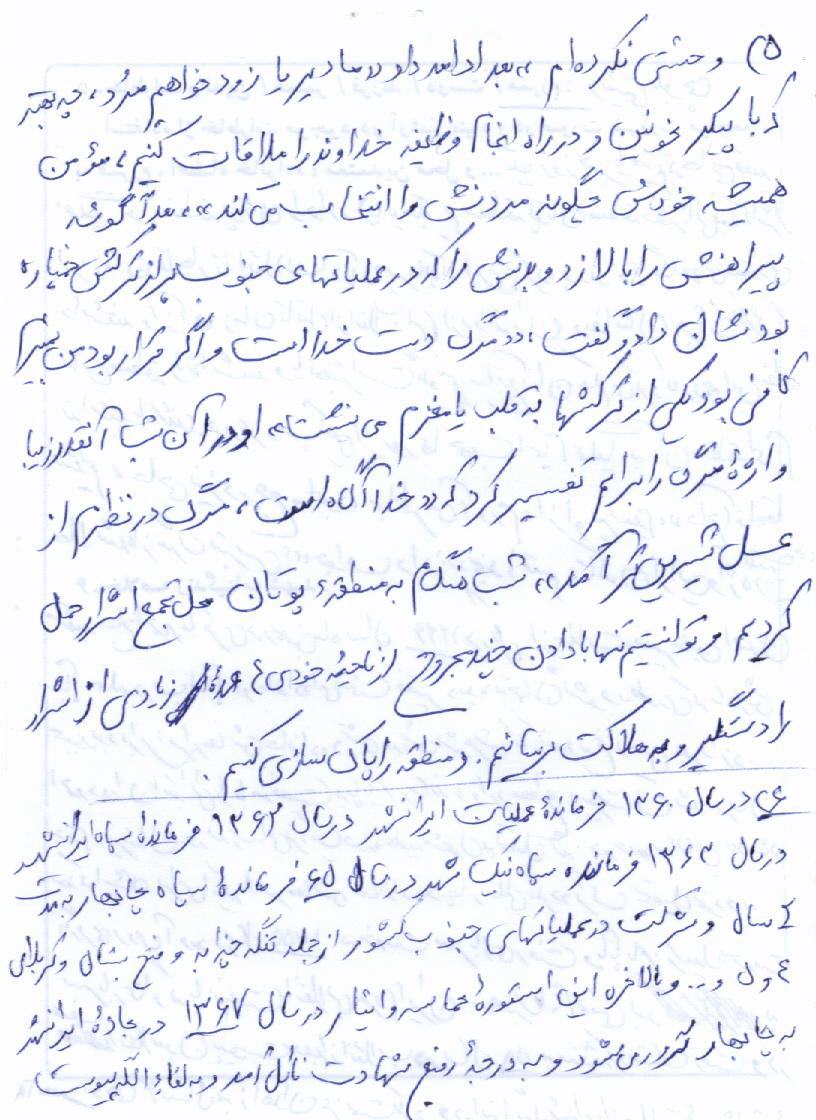 ۵) وحشتی نکرده‌ام، بعد ادامه داد «ما دیر یا زود خواهیم مرد، چه بهتر
که با پیکر خونین و در راه انجام وظیفه خداوند را ملاقات کنیم، مؤمن
همیشه خودش چگونه مردنش را انتخاب می‌کند»، بعداً گوشه
پیراهنش را بالا زد و بدنش را که در عملیاتهای جنوب پر از ترکش خمپاره
بود نشان داد و گفت، «مرگ دست خداست و اگر قرار بود من بمیرم
کافی بود یکی از ترکشها به قلب یا مغزم می‌نشست» او در آن شب آنقدر زیبا
واژهٔ مرگ را برایم تفسیر کرد که «خدا آگاه است، مرگ در نظرم از
عسل شیرین‌تر آمد»، شب هنگام به منطقهٔ پوتان محل تجمع اشرار حمل
کردیم و توانستیم تنها با دادن چند مجروح از ناحیهٔ خودی، عدهٔ زیادی از اشرار
را دستگیر و به هلاکت برسانیم. و منطقه را پاک سازی کنیم.
۶) در سال ۱۳۶۰ فرماندهٔ عملیات ایرانشهر در سال ۱۳۶۲ فرماندهٔ سپاه ایرانشهر
در سال ۱۳۶۳ فرمانده سپاه نیک شهر در سال ۶۵ فرماندهٔ سپاه چابهار به مدت
۴ سال و شرکت در عملیاتهای جنوب کشور از جمله تنگه چزابه و فتح بستان و کربلای
۴ و ل و... و بالاخره این اسطورهٔ حماسه و ایثار در سال ۱۳۶۷ در جادهٔ ایرانشهر
به چابهار ترور می‌شود و به درجهٔ رفیع شهادت نائل آمد و به لقاء الله پیوست.